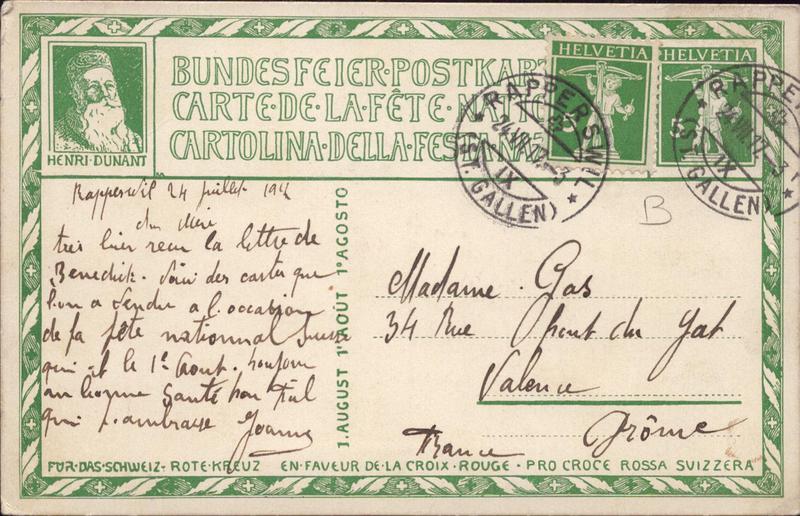 BUNDESFEIER·POSTKAR
CARTE·DE·LA·FÊTE·NA
CARTOLINA·DELLA·FESTA·NA
HENRI·DUNANT
HELVETIA
5
HELVETIA
5
RAPPERSWIL
24.VII.17.-3
IX
(ST. GALLEN)
RAPPERS
24.VII.17.-3
IX
(ST. GALLEN)
B
Rapperswil 24 juillet 191
très bien reçu la lettre de
Benedick. Voici des cartes que
l'on a vendu a l'occasion
de la fête nationnal Suisse
qui est le 1er Aout. toujour
en bonne santé ton Fil
qui t'embrasse Joanny
1.AUGUST 1ER AOÛT 1º AGOSTO
Madame. Gas
34 Rue Pont du Gat
Valence
Drôme
France
FÜR·DAS·SCHWEIZ·ROTE·KREUZ EN·FAVEUR·DE·LA CROIX·ROUGE·PRO CROCE ROSSA SVIZZERA